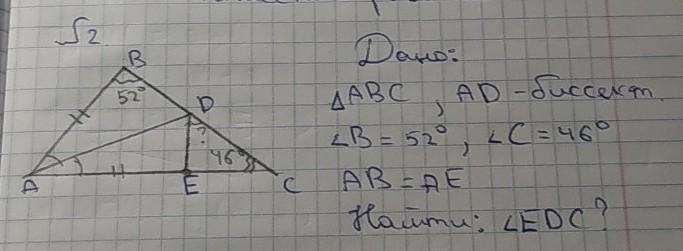 √2.
B
52°
D
?
46°
A
E
C
Дано:
△ABC, AD - биссект.
∠B = 52°, ∠C = 46°
AB = AE
Найти: ∠EDC?